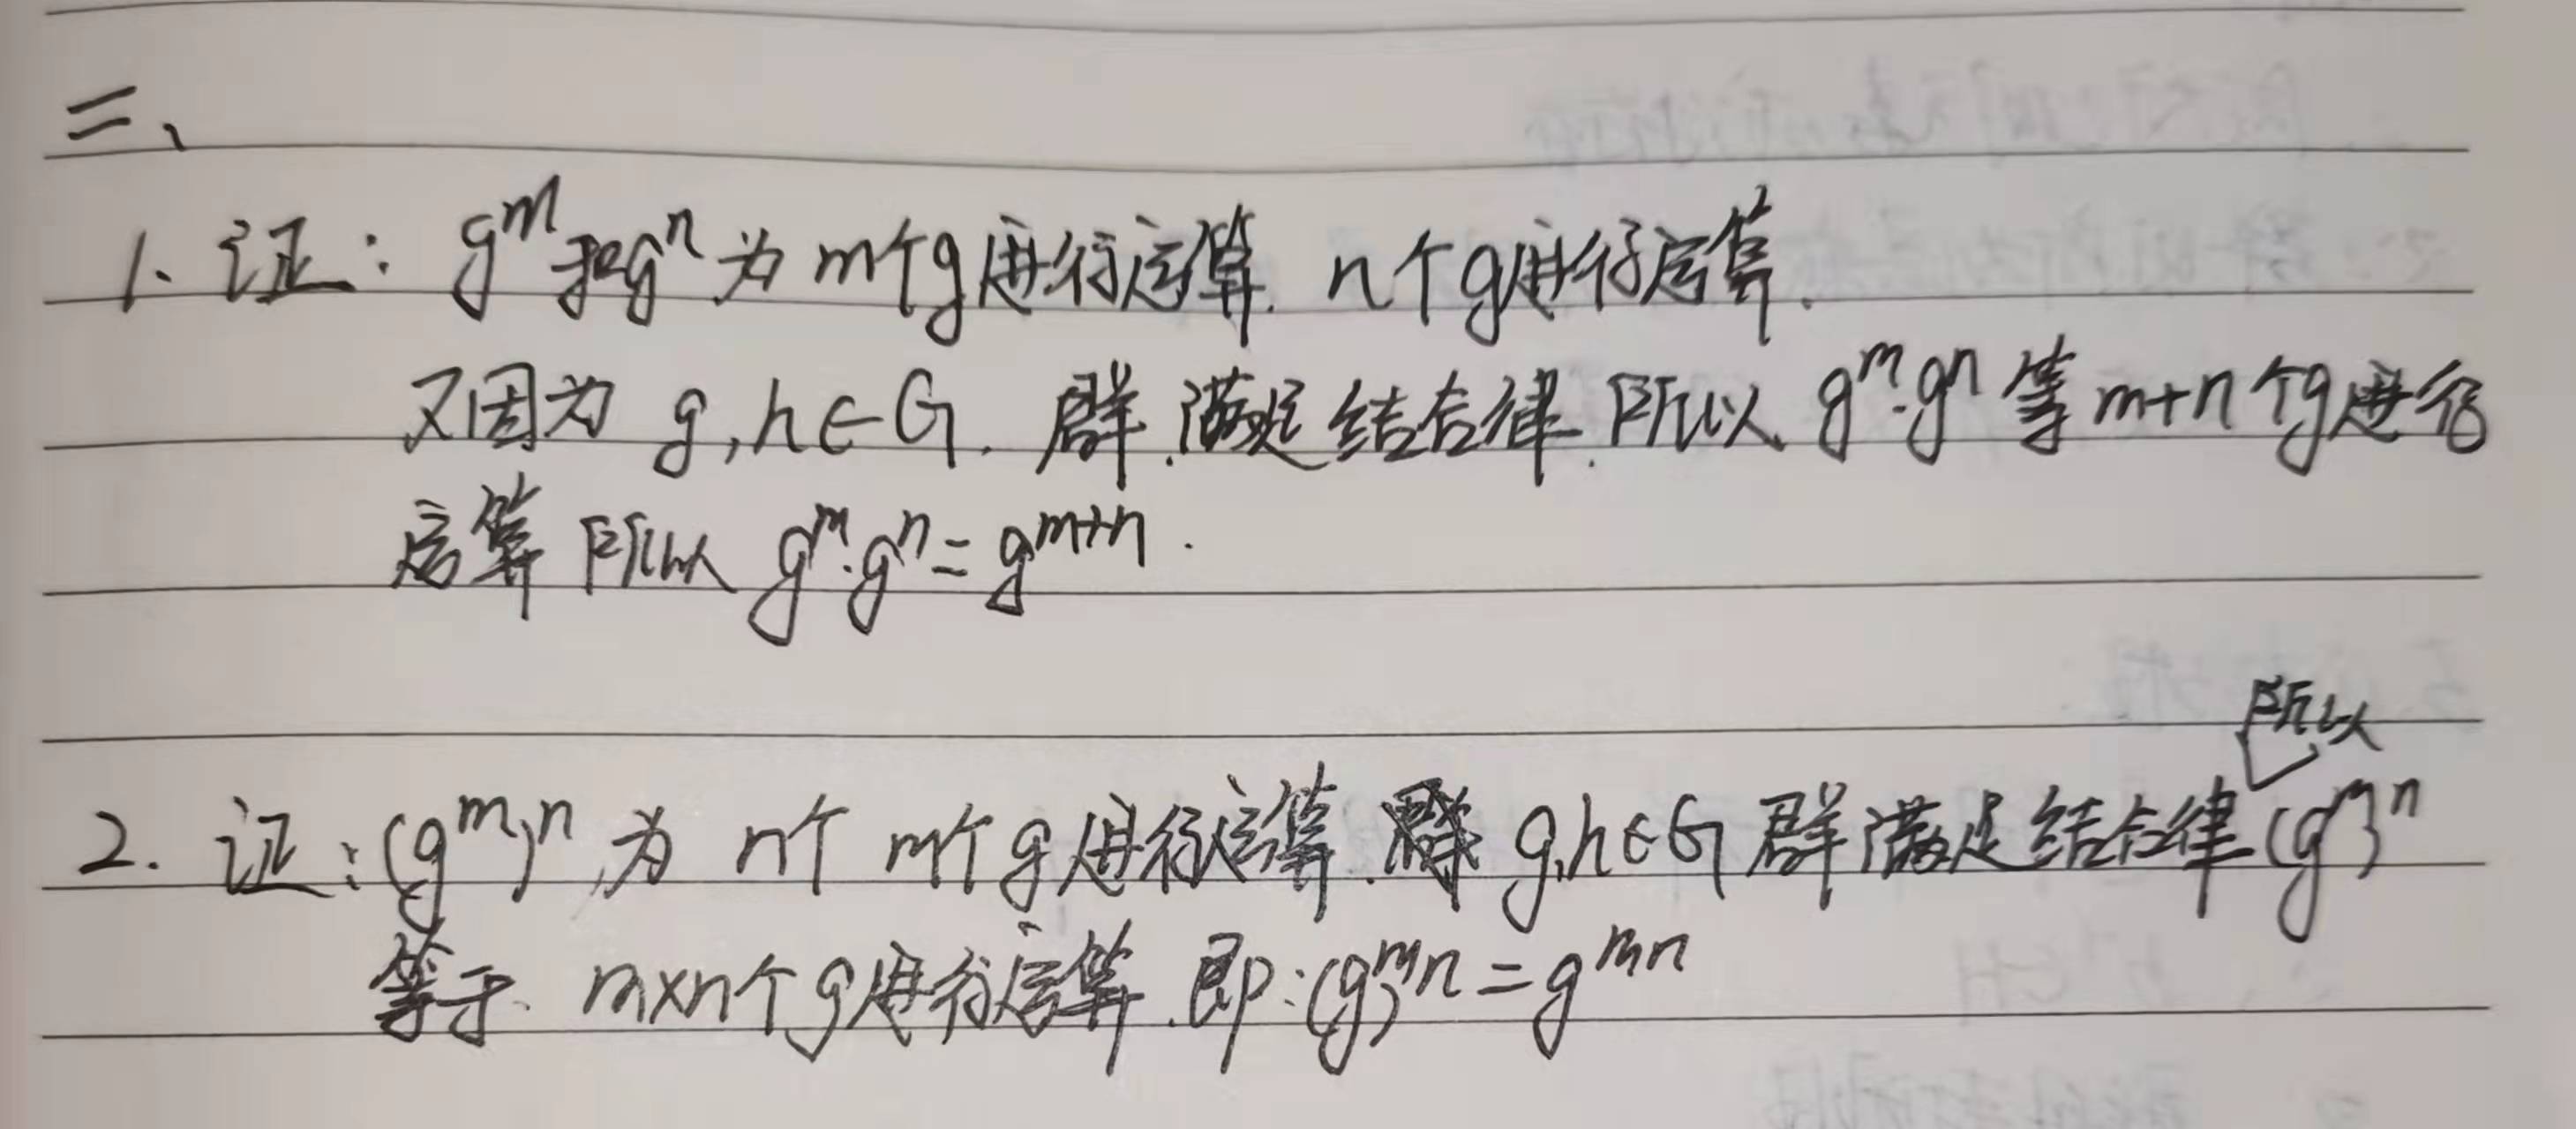 二、
1. 证：g^m和g^n为m个g进行运算. n个g进行运算.
又因为 g,h∈G. 群.满足结合律.所以 g^m·g^n等m+n个g进行
运算 所以 g^m·g^n=g^{m+n}.
所以
2. 证:(g^m)^n,为 n个 m个g进行运算. g,h∈G 群满足结合律(g^m)^n
等于. m×n个g进行运算.即:(g^m)^n=g^{mn}